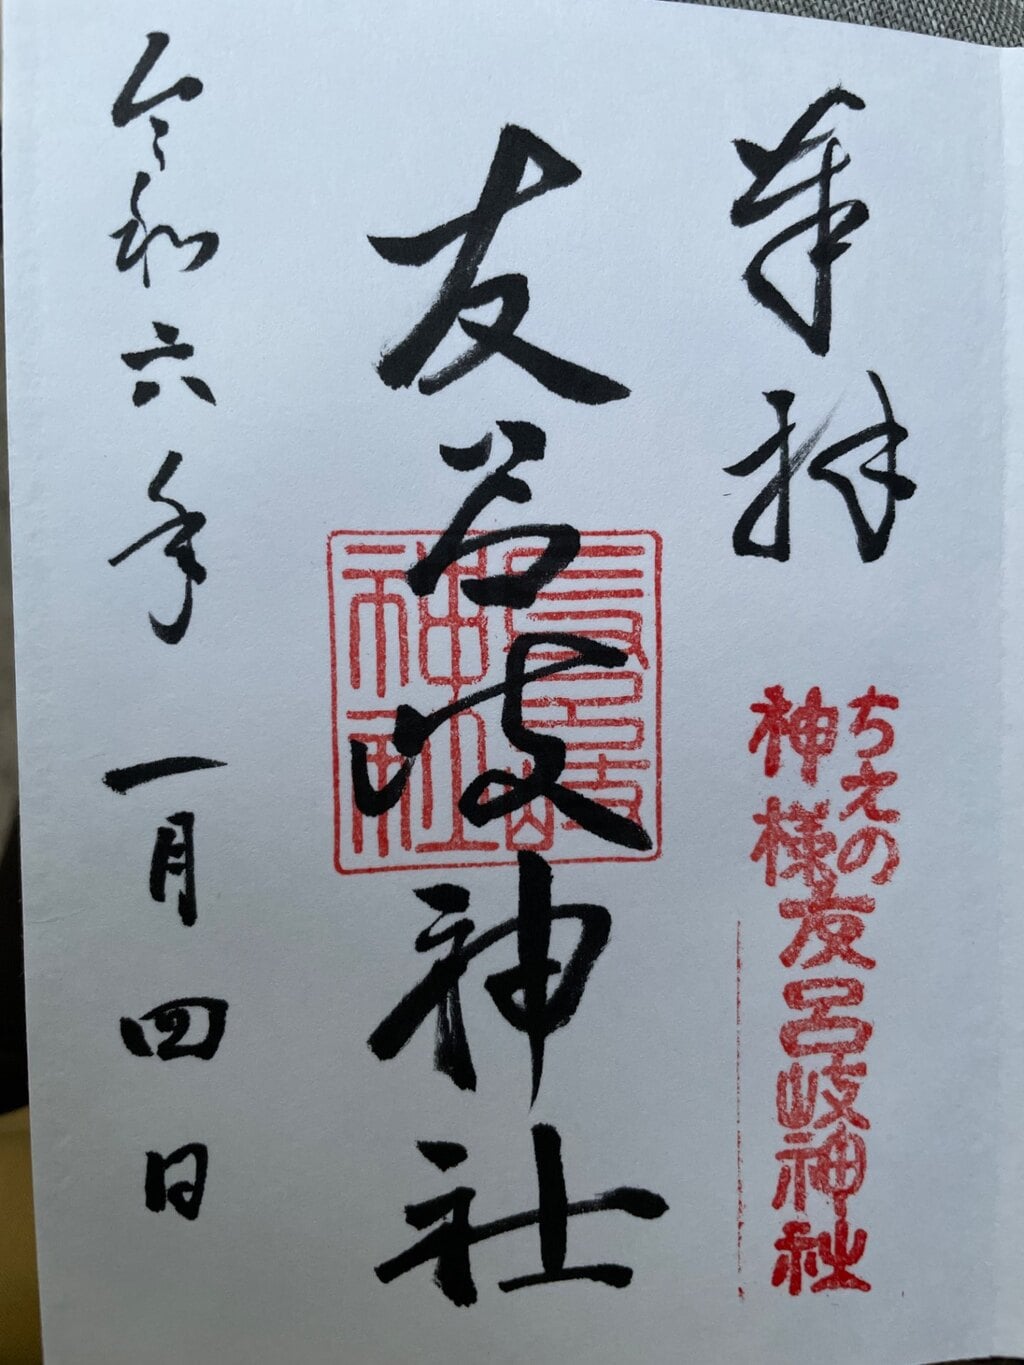 奉拝
ちえの
神様
友呂岐神社
友呂岐神社
友呂岐神社
令和六年 一月四日